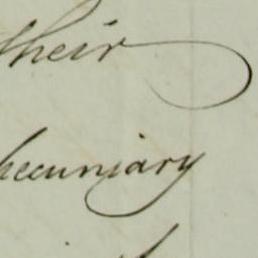 their
pecuniary